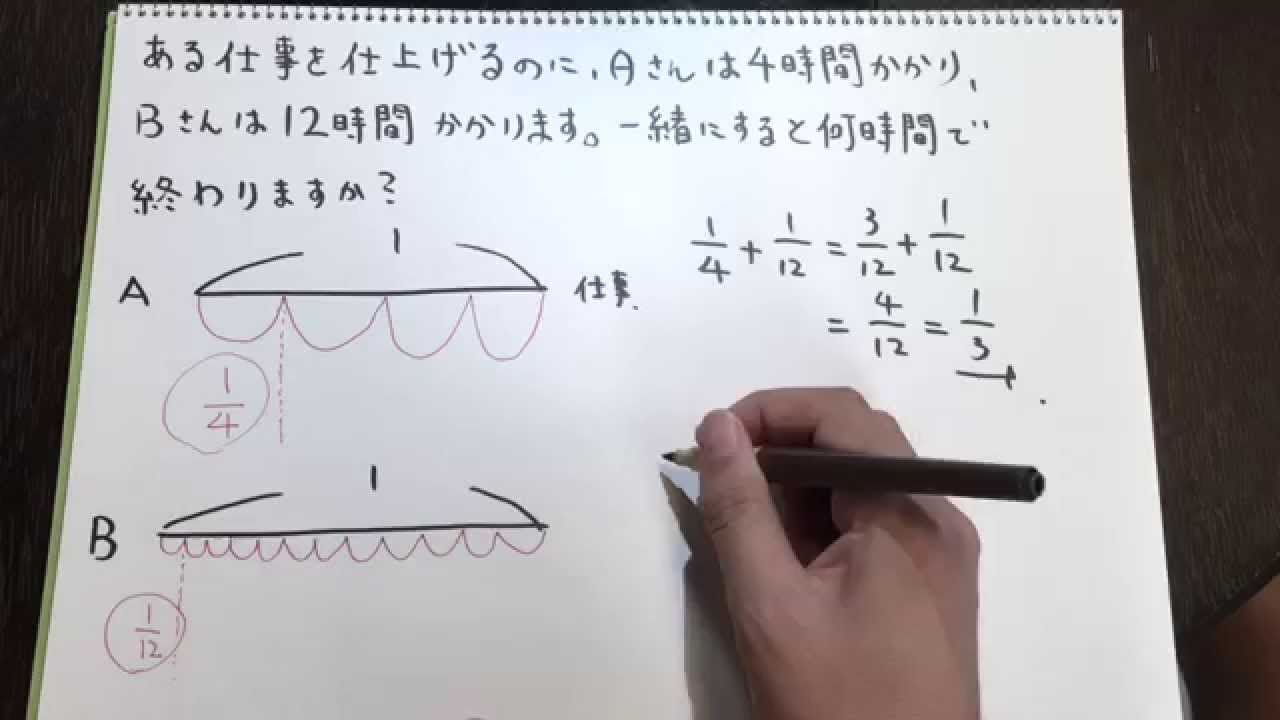 ある仕事を仕上げるのに、Aさんは4時間かかり、
Bさんは12時間かかります。一緒にすると何時間で
終わりますか?
1/4 + 1/12 = 3/12 + 1/12
= 4/12 = 1/3
1
A
仕事
1/4
1
B
1/12